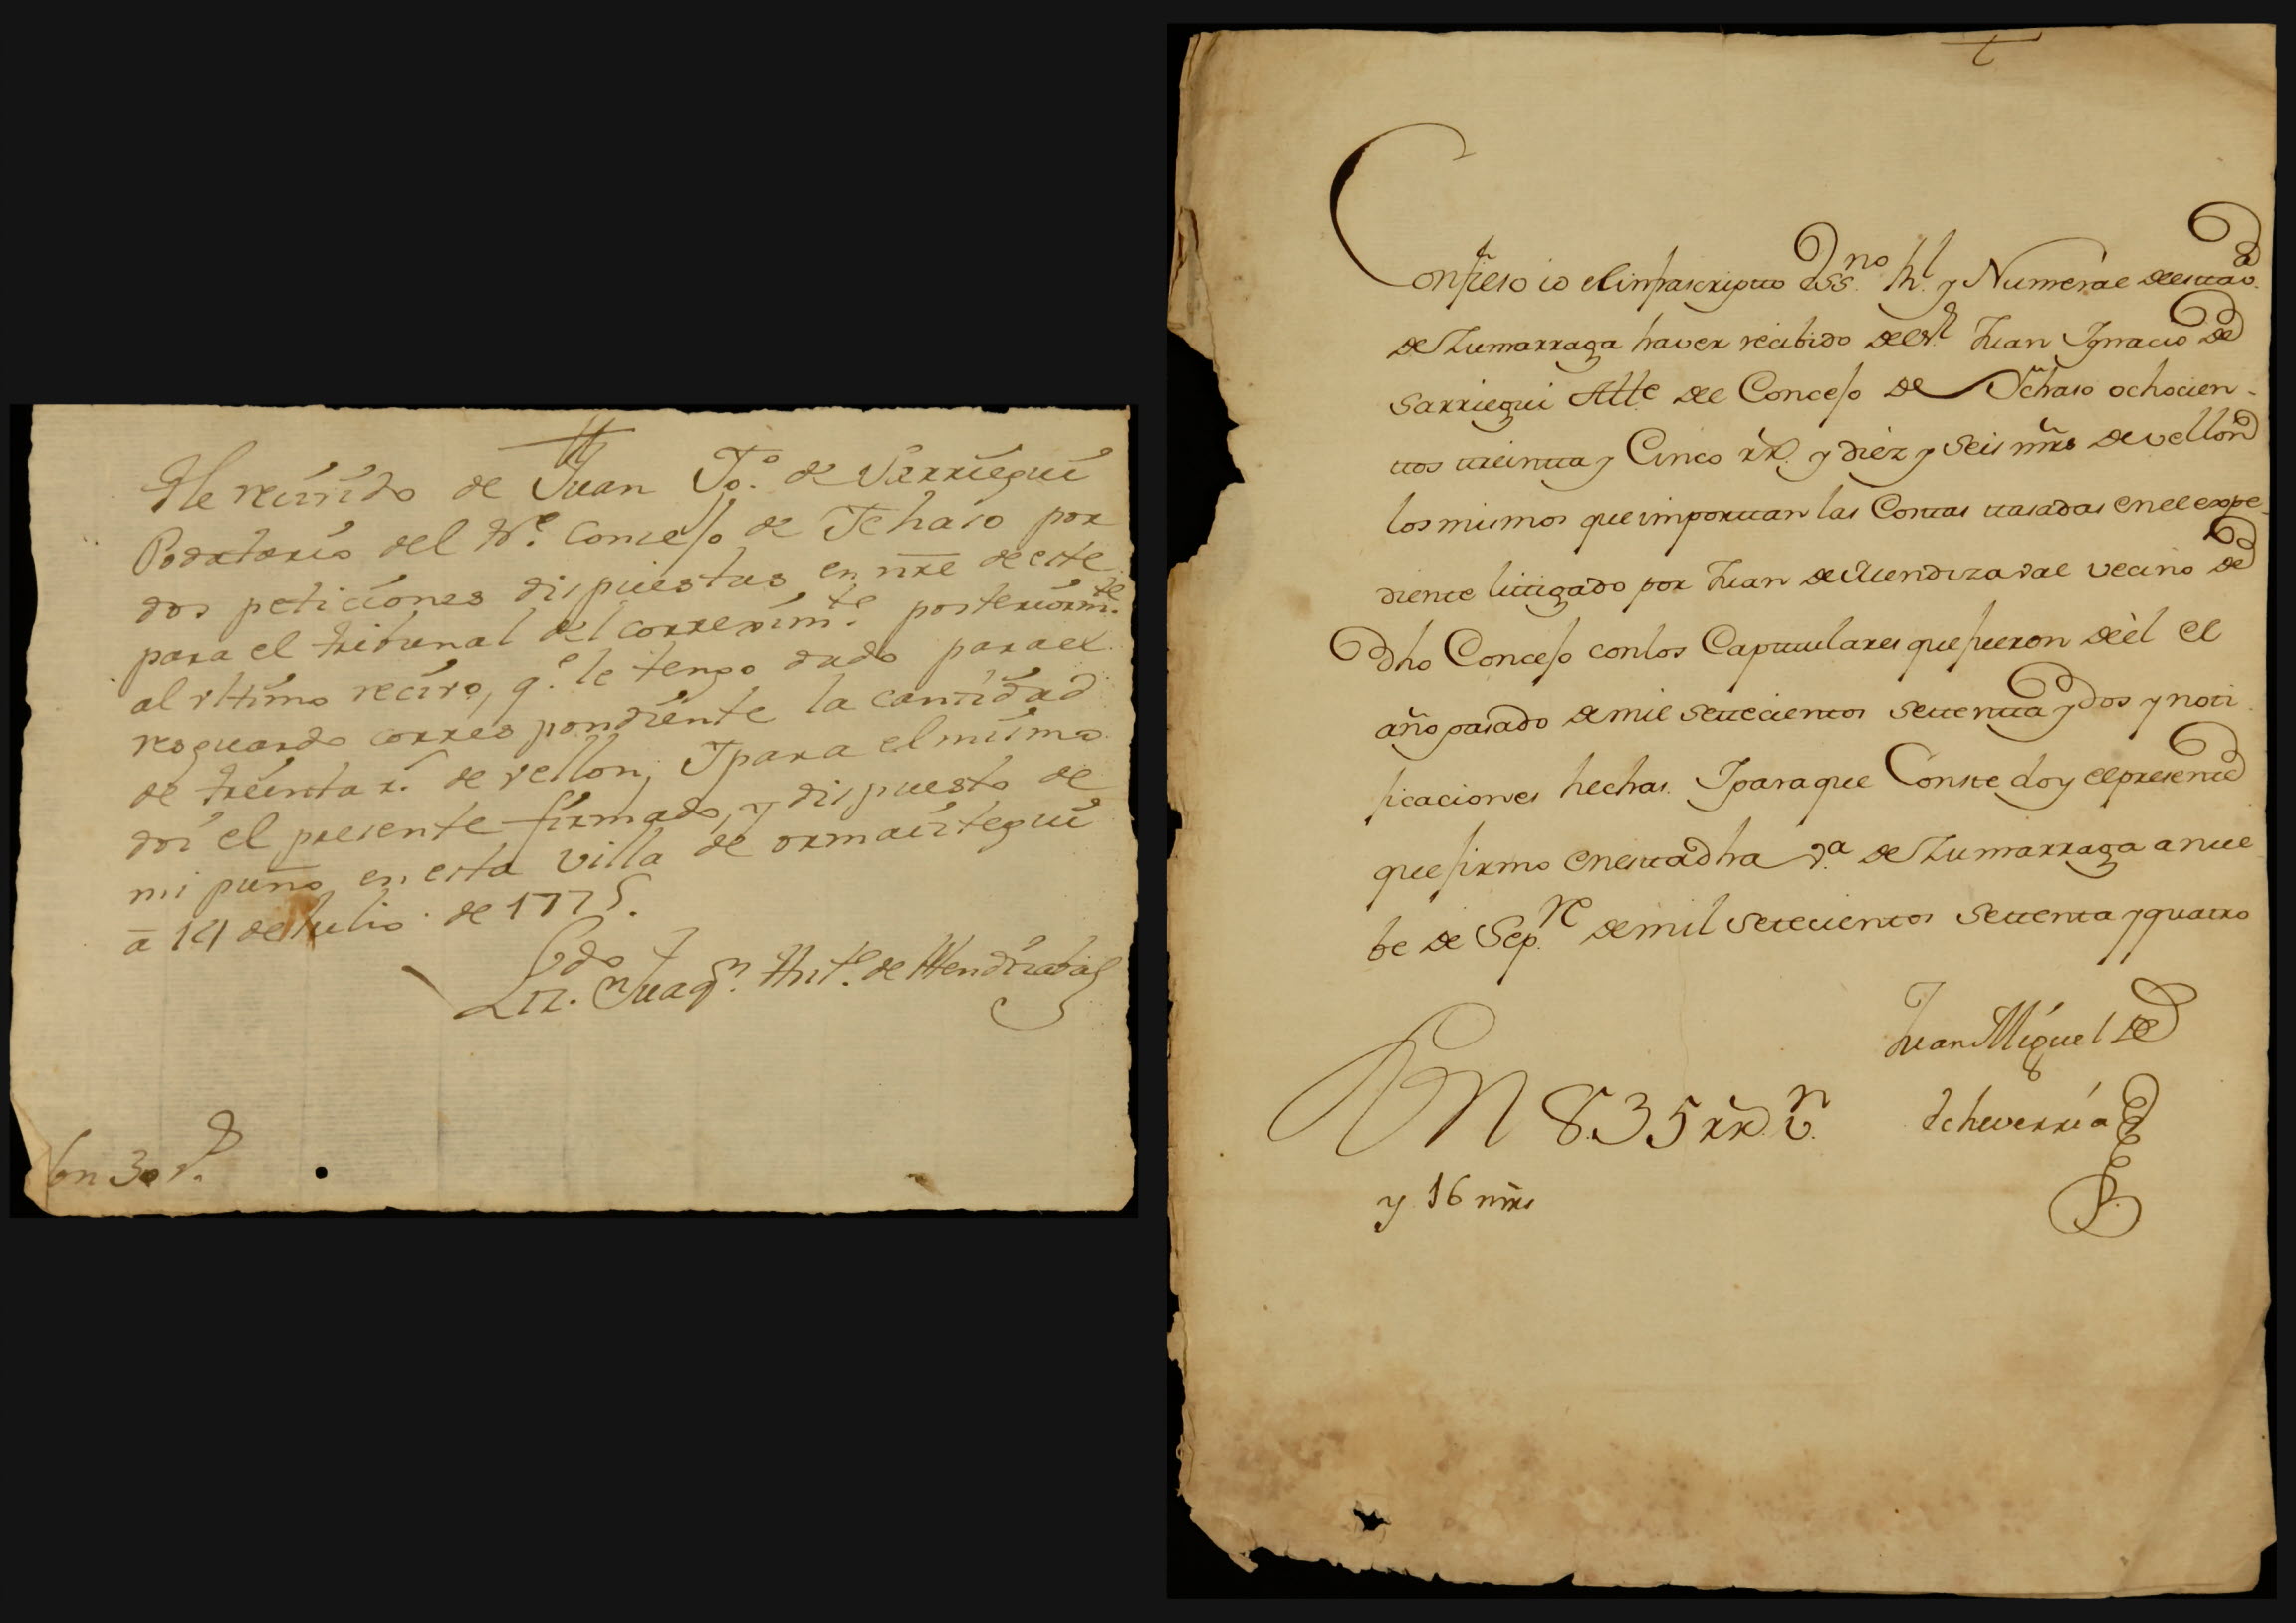 He recivido de Juan Jo. de Sarriegui
Podatario del Ne. Concejo de Ichaso por
dos peticiones dispuestas en nre de este
para el tribunal del correximte. posteriormte.
al vltimo recivo, qe. le tengo dado para el
resguardo correspondiente la cantidad
de treinta rs. de vellon; Y para el mismo
doi el presente firmado, y dispuesto de
mi puño en esta villa de ormaiztegui
a 14 de Julio de 1775.
Lizdo. Juaqn. Anto. de Mendizabal
Son 30 rs.
Confieso io el infrascripto Essno. Rl. y Numeral de esta va.
de Zumarraga haver recibido de Juan Ignacio de
Sarriegui Alle. del Concejo de Ychaso ochocien-
tos treinta y Cinco rrs. y diez y seis mrs de vellon
los mismos que importan las Costas tasadas en el expe-
diente litigado por Juan de Mendizaval vecino de
dho Concejo con los Capitulares que fueron de èl el
año pasado de mil setecientos settenta y dos y noti
ficaciones hechas. Y para que Conste doy el presente
que firmo en esta dha va. de Zumarraga a nue
be de Sepre. de mil setecientos settenta y quatro
Juan Miguel de
Echeverria
Son 835 rrs. vn.
y 16 mrs